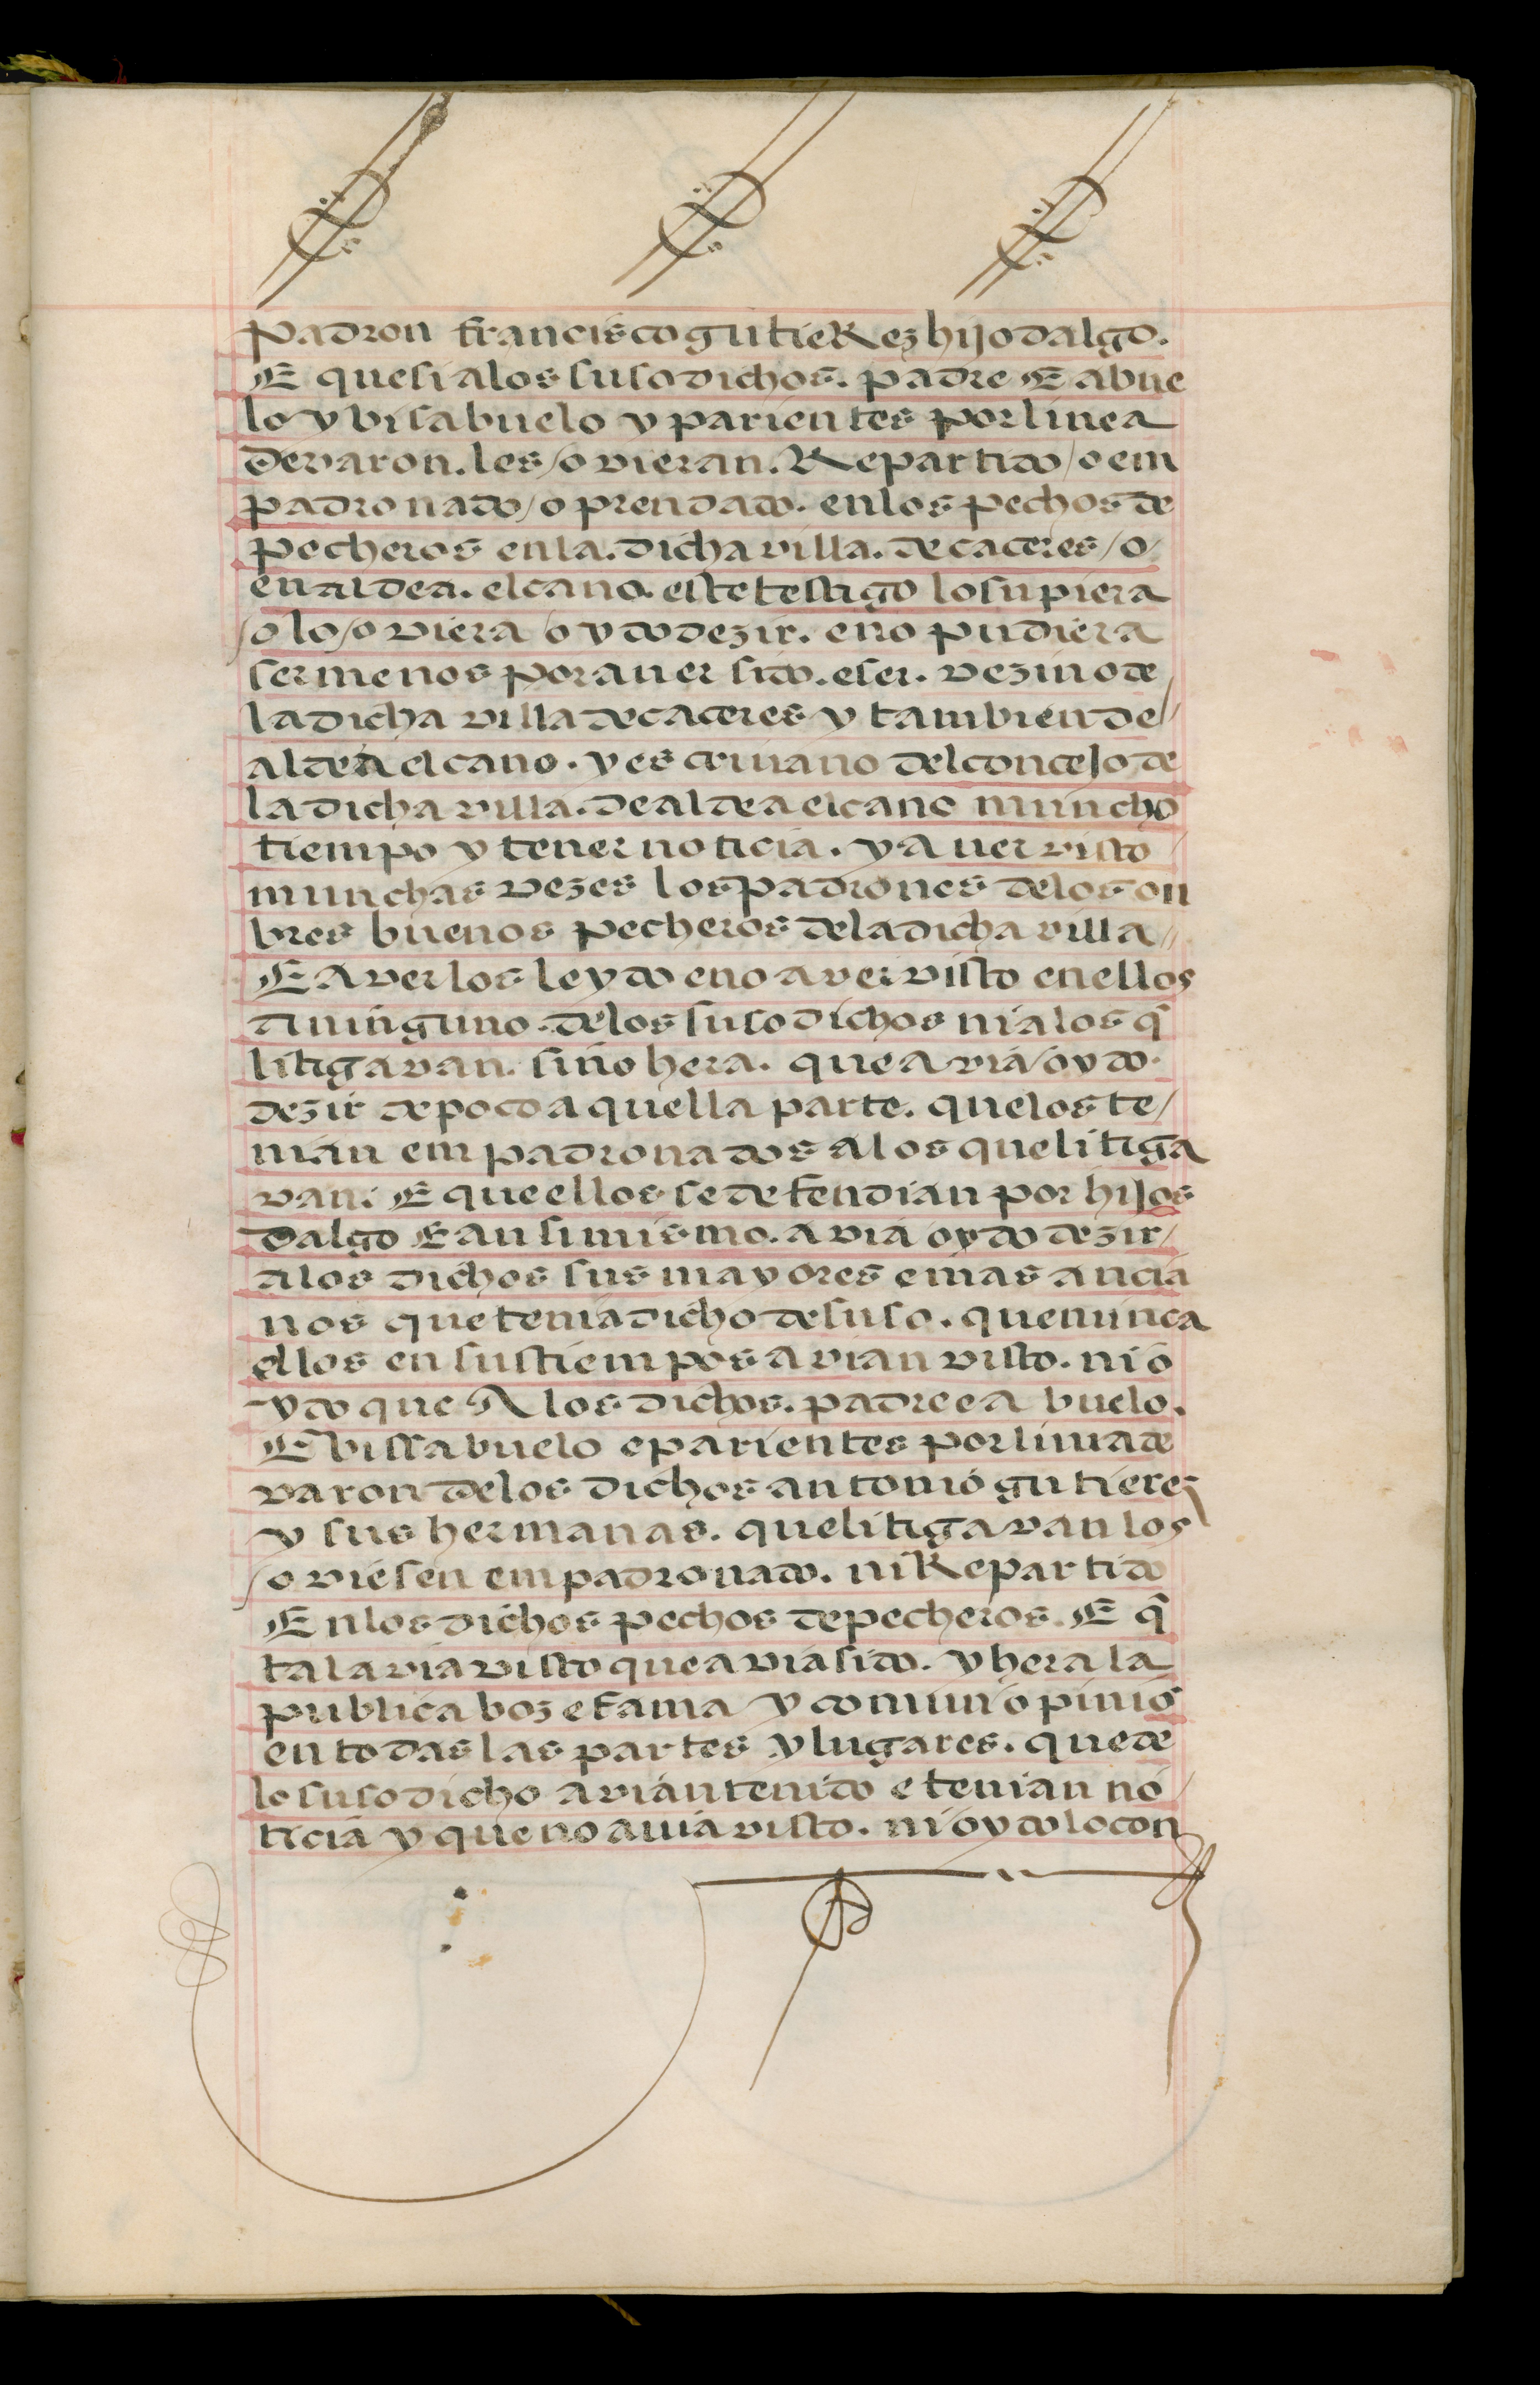 padron francisco gutieRez hijo dalgo.
E que si a los suso dichos. padre E abue
lo y bisabuelo y parientes por linea
de varon. les / ovieran. Repartido / o em
padronado / o prendado. en los pechos de
pecheros en la. dicha villa. de caceres / o /
en aldea. el cano. este testigo lo supiera
/ o lo / oviera / oydo dezir. e no pudiera
ser menos por aver sido. e ser. vezino de
la dicha villa de caceres y tambien de /
aldea el cano. y escrivano del concejo de
la dicha villa. de aldea el cano muncho
tiempo y tener noticia. y aver visto
munchas vezes los padrones de los on
bres buenos pecheros de la dicha villa //
E averlos leydo e no aver visto en ellos
a ninguno. de los suso dichos ni a los q̃
litigavan. sino hera. que avia / oydo.
dezir de poco aquella parte. que los te /
nian empadronados a los que litiga
van. E que ellos se defendian por hijos
dalgo E ansimismo. avia oydo dezir /
a los dichos sus mayores e mas ancia
nos que tenia dicho de suso. que nunca
ellos en sus tiempos avian visto. ni o
ydo que A los dichos. padre e abuelo.
E bissabuelo e parientes por linia de
varon de los dichos antonio gutierez
y sus hermanas. que litigavan los
/ oviesen empadronado. ni Repartido
En los dichos pechos de pecheros. E q̃
tal avia visto que avia sido. y hera la
publica boz e fama y comun opinio
en todas las partes y lugares. que de
lo suso dicho avian tenido e tenian no /
ticia y que no avia visto. ni oydo lo con